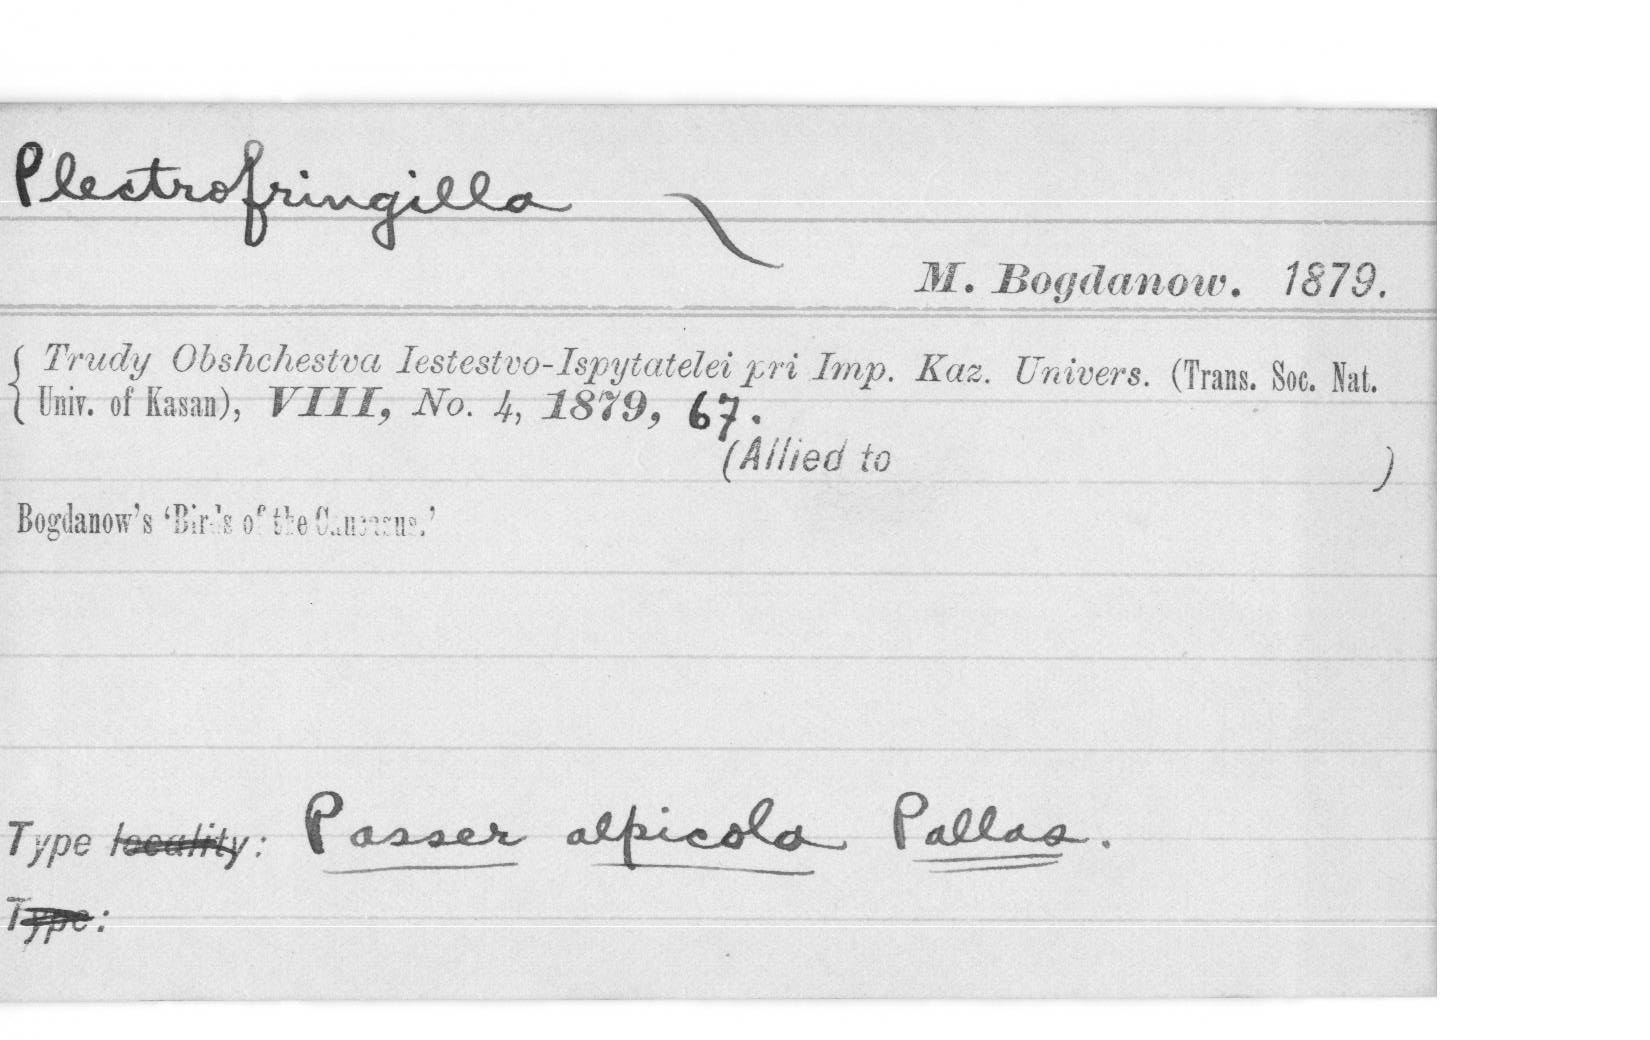 Plectrofringilla
M. Bogdanow. 1879.
Trudy Obshchestva Iestestvo-Ispytatelei pri Imp. Kaz. Univers. (Trans. Soc. Nat.
Univ. of Kasan), VIII, No. 4, 1879, 67.
(Allied to )
Bogdanow's 'Birds of the Caucasus.'
Type locality: Passer alpicola Pallas.
Type: